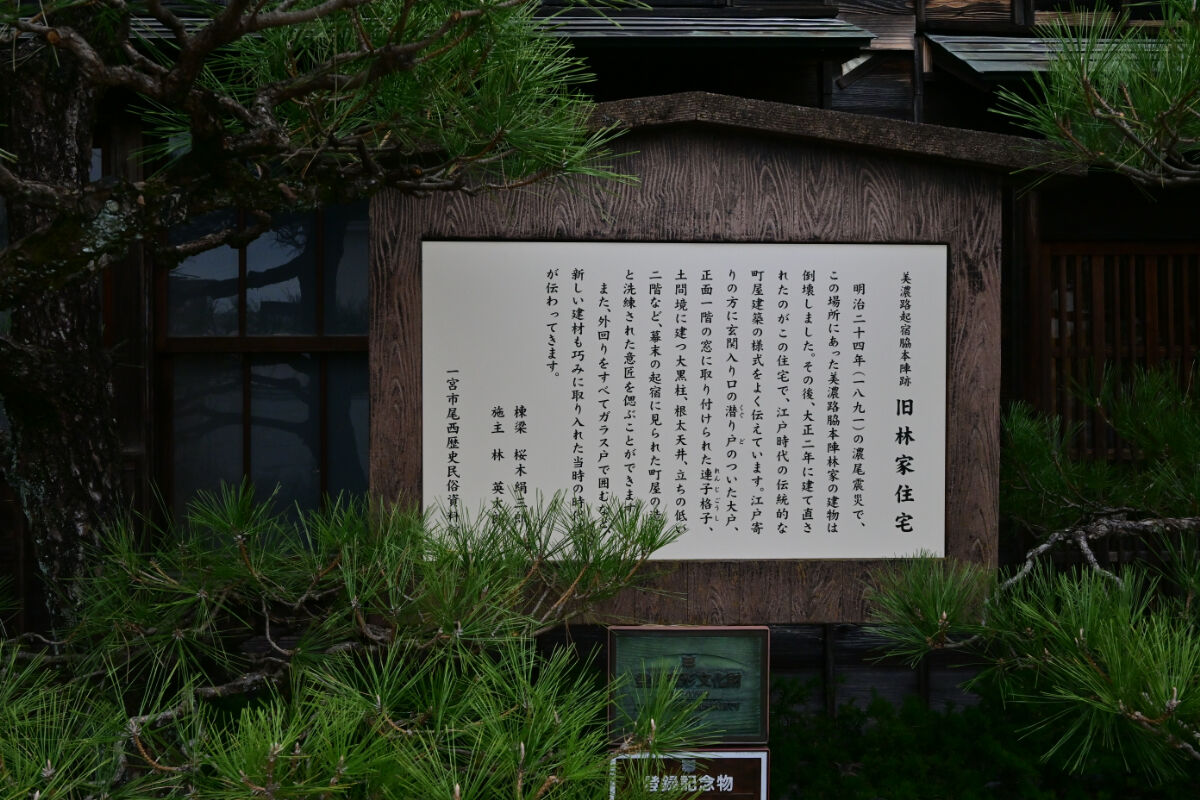 美濃路起宿脇本陣跡 旧林家住宅
明治二十四年(一八九一)の濃尾震災で、
この場所にあった美濃路脇本陣林家の建物は
倒壊しました。その後、大正二年に建て直さ
れたのがこの住宅で、江戸時代の伝統的な
町屋建築の様式をよく伝えています。江戸寄
りの方に玄関入り口の潜り戸のついた大戸、
くぐ ど
正面一階の窓に取り付けられた連子格子、
れんじごうし
土間境に建つ大黒柱、根太天井、立ちの低い
二階など、幕末の起宿に見られた町屋の
と洗練された意匠を偲ぶことができます
また、外回りをすべてガラス戸で囲むな
新しい建材も巧みに取り入れた当時の時
が伝わってきます。
棟梁 桜木絹三
施主 林 英太
一宮市尾西歴史民俗資料
文化財
登録記念物